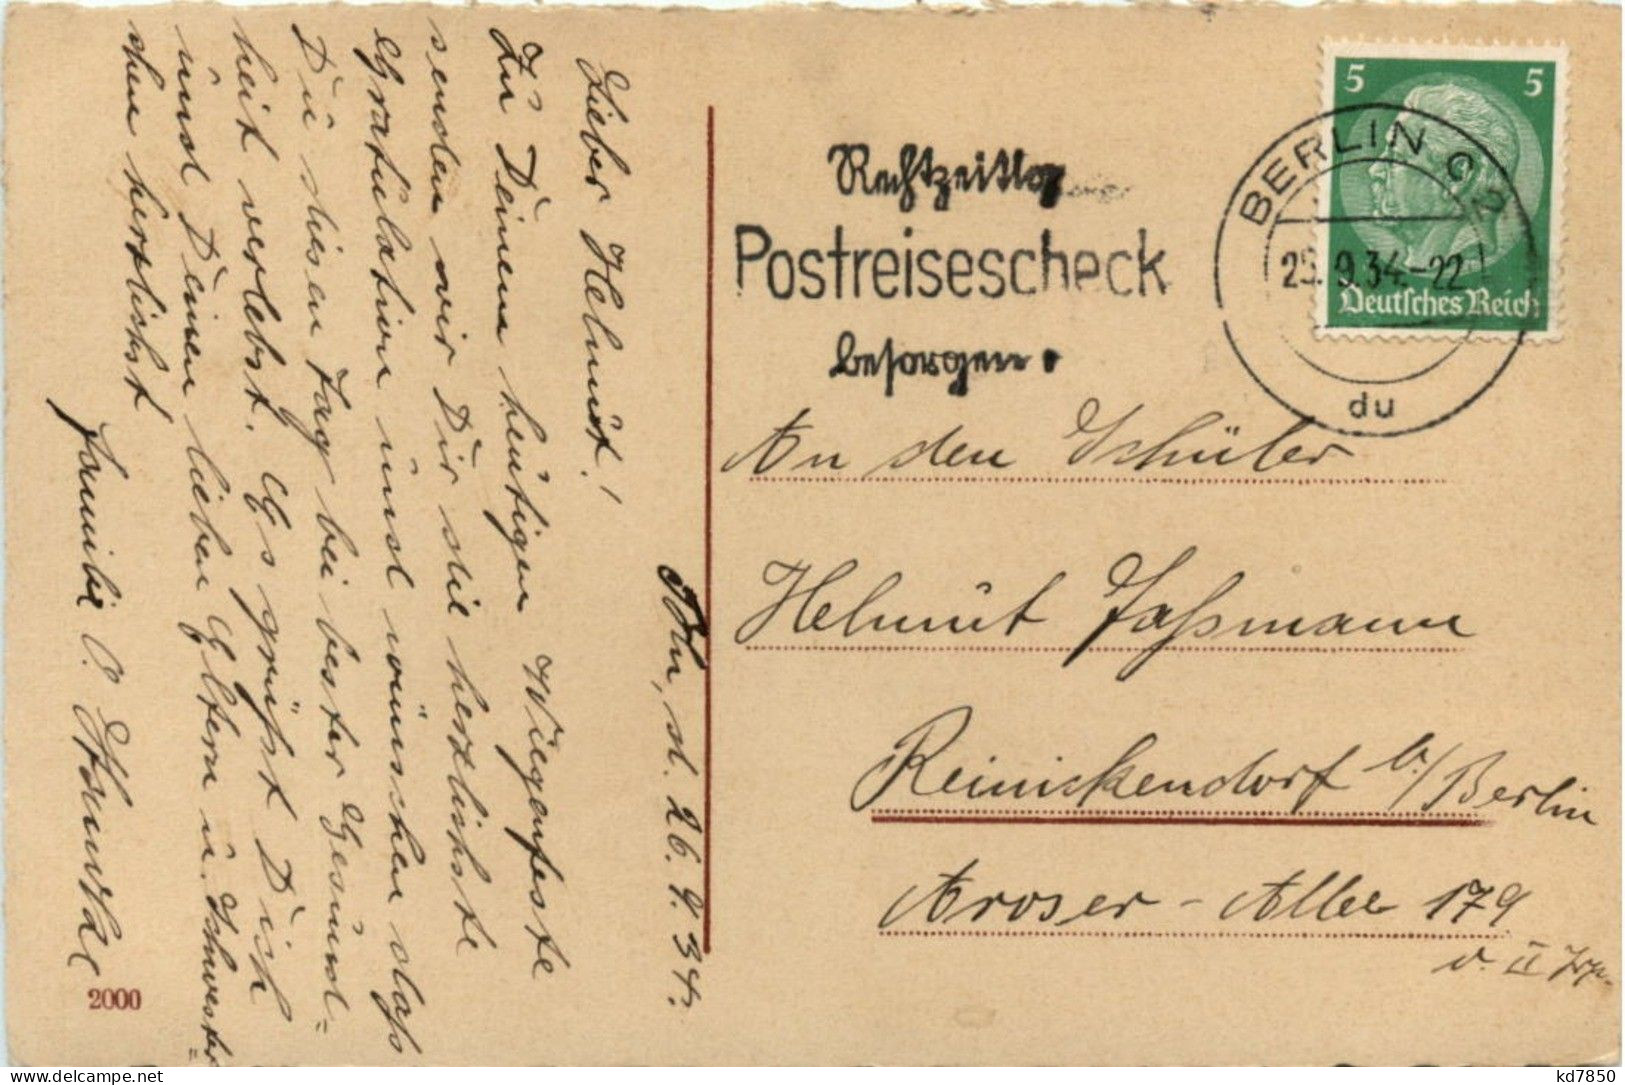 Bln, d. 26.9.34.
Lieber Helmut!
Zu Deinem heutigen Wiegenfeste
senden wir Dir die herzlichste
Gratulation und wünschen das
Du diesen Tag bei bester Gesund=
heit verlebst. Es grüßt Dich
und Deinen lieben Eltern u. Schwester=
chen herzlichst
Familie
2000
Rechtzeitig
Postreisescheck
besorgen.
BERLIN C 2
9.34-22
du
5 5
Deutsches Reich
An den Schüler
Helmut Faßmann
Reinickendorf b/Berlin
Aroser-Allee 179
v. II Trp.
kd7850